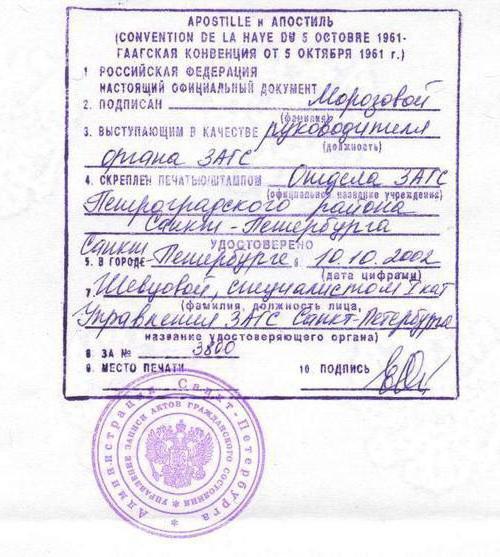 APOSTILLE и АПОСТИЛЬ
(CONVENTION DE LA HAYE DU 5 OCTOBRE 1961-
ГААГСКАЯ КОНВЕНЦИЯ ОТ 5 ОКТЯБРЯ 1961 г.)
1 РОССИЙСКАЯ ФЕДЕРАЦИЯ
НАСТОЯЩИЙ ОФИЦИАЛЬНЫЙ ДОКУМЕНТ
2. ПОДПИСАН Морозовой
(фамилия)
3. ВЫСТУПАЮЩИМ В КАЧЕСТВЕ руководителя
(должность)
органа ЗАГС
4. СКРЕПЛЕН ПЕЧАТЬЮ/ШТАМПОМ Отдела ЗАГС
(официальное название учреждения)
Петроградского района
Санкт-Петербурга
УДОСТОВЕРЕНО
5. В ГОРОДЕ Санкт-Петербурге 6. 10.10.2002
(дата цифрами)
7. Шевцовой, специалистом I кат
(фамилия, должность лица,
Управления ЗАГС Санкт-Петербурга
название удостоверяющего органа)
8. ЗА № 3800
9. МЕСТО ПЕЧАТИ 10 ПОДПИСЬ
Администрация Санкт-Петербурга
УПРАВЛЕНИЕ ЗАПИСИ АКТОВ ГРАЖДАНСКОГО СОСТОЯНИЯ